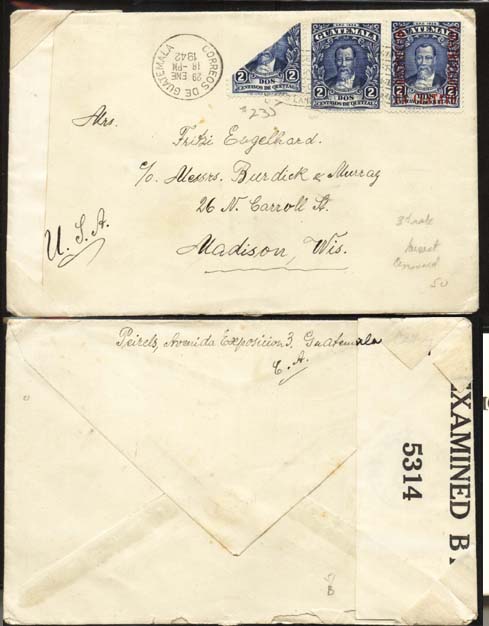 CORREOS DE GUATEMALA
29 ENE
18-PM
1942
2 DOS 2
CENTAVOS DE QUETZAL
GUATEMALA
2 DOS 2
CENTAVOS DE QUETZAL
GUATEMALA
UN CENTAVO
2 2
Mrs.
Fritzi Engelhard.
c/o Messrs. Burdick & Murray
26 N. Carroll St.
Madison, Wis.
U. S. A.
3¢ rate
bisect
Censored
50
Peirels, Avenida Exposicion 3. Guatemala
C. A.
EXAMINED B
5314
B